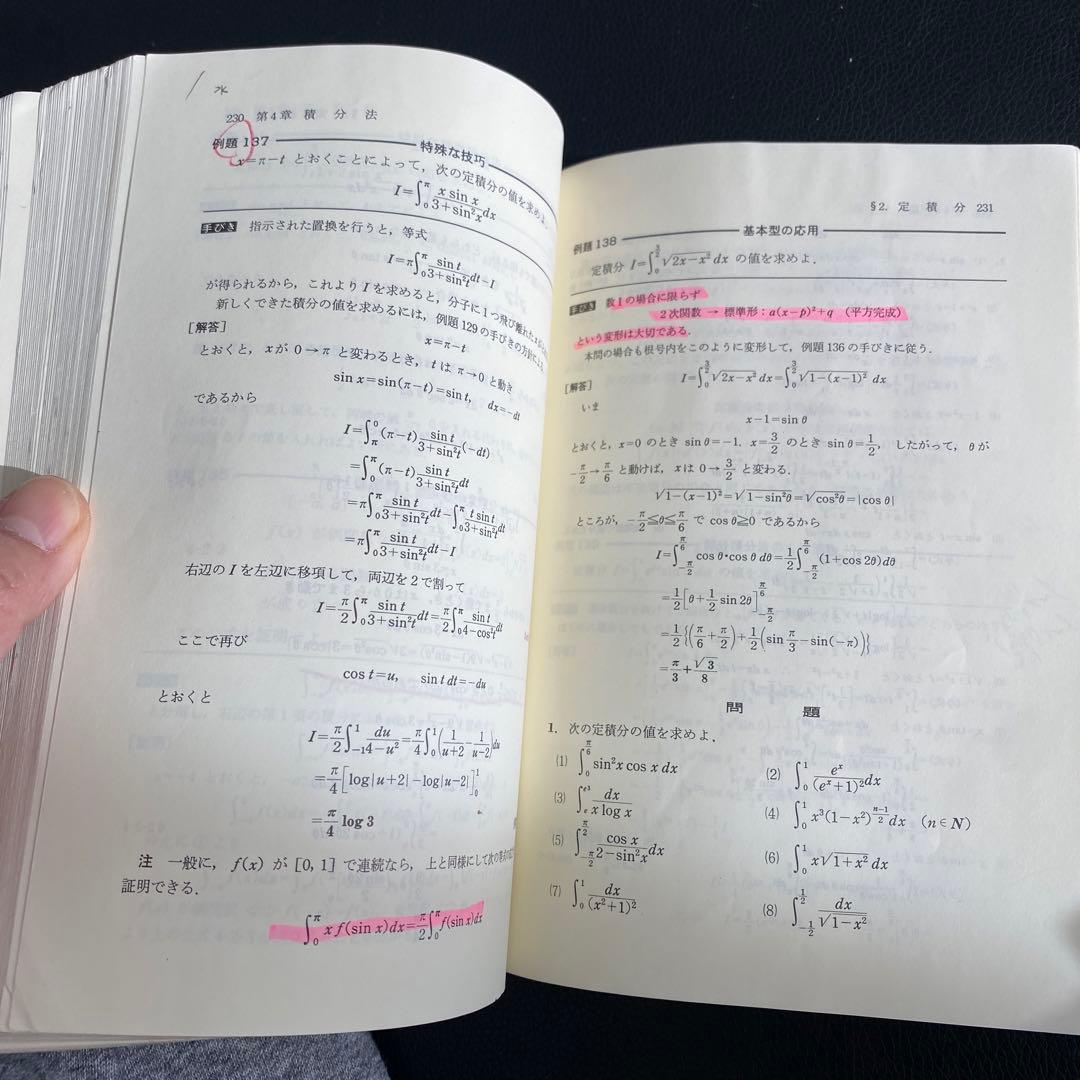 水
230 第4章 積 分 法
例題 137 特殊な技巧
x=π−t とおくことによって,次の定積分の値を求めよ.
I=∫₀^π (x sin x)/(3+sin²x) dx
手びき 指示された置換を行うと,等式
I=π∫₀^π (sin t)/(3+sin²t) dt−I
が得られるから,これより I を求めると,分子に1つ飛び離れたxが
新しくできた積分の値を求めるには,例題129の手びきの方針による.
〔解答〕 x=π−t
とおくと,xが 0→π と変わるとき,t は π→0 と動き
sin x=sin(π−t)=sin t, dx=−dt
であるから
I=∫_π^0 (π−t) (sin t)/(3+sin²t) (−dt)
=∫₀^π (π−t) (sin t)/(3+sin²t) dt
=π∫₀^π (sin t)/(3+sin²t) dt−∫₀^π (t sin t)/(3+sin²t) dt
=π∫₀^π (sin t)/(3+sin²t) dt−I
右辺の I を左辺に移項して,両辺を2で割って
I=π/2 ∫₀^π (sin t)/(3+sin²t) dt=π/2 ∫₀^π (sin t)/(4−cos²t) dt
ここで再び
cos t=u, sin t dt=−du
とおくと
I=π/2 ∫_{−1}^1 du/(4−u²)=π/4 ∫₀^1 (1/(u+2)−1/(u−2)) du
=π/4 [log|u+2|−log|u−2|]₀^1
=π/4 log 3
注 一般に,f(x) が [0,1] で連続なら,上と同様にして次の
証明できる.
∫₀^π x f(sin x)dx=π/2 ∫₀^π f(sin x)dx
§2. 定 積 分 231
例題 138 基本型の応用
定積分 I=∫₀^{3/2} √(2x−x²) dx の値を求めよ.
手びき 数Iの場合に限らず
2次関数 → 標準形:a(x−p)²+q (平方完成)
という変形は大切である.
本問の場合も根号内をこのように変形して,例題136の手びきに従う.
〔解答〕 I=∫₀^{3/2} √(2x−x²) dx=∫₀^{3/2} √(1−(x−1)²) dx
いま
x−1=sin θ
とおくと,x=0 のとき sin θ=−1. x=3/2 のとき sin θ=1/2, したがって,θが
−π/2→π/6 と動けば,xは 0→3/2 と変わる.
√(1−(x−1)²)=√(1−sin²θ)=√(cos²θ)=|cos θ|
ところが,−π/2≦θ≦π/6 で cos θ≧0 であるから
I=∫_{−π/2}^{π/6} cos θ·cos θ dθ=1/2 ∫_{−π/2}^{π/6} (1+cos 2θ) dθ
=1/2 [θ+1/2 sin 2θ]_{−π/2}^{π/6}
=1/2 {(π/6+π/2)+1/2 (sin π/3−sin(−π))}
=π/3+√3/8
問 題
1. 次の定積分の値を求めよ.
(1) ∫₀^{π/6} sin²x cos x dx (2) ∫₀^1 e^x/(e^x+1)² dx
(3) ∫_e^{e³} dx/(x log x) (4) ∫₀^1 x³(1−x²)^{(n−1)/2} dx (n∈N)
(5) ∫_{−π/2}^{π/2} (cos x)/(2−sin²x) dx (6) ∫₀^1 x√(1+x²) dx
(7) ∫₀^1 dx/(x²+1)² (8) ∫_{−1/2}^{1/2} dx/√(1−x²)